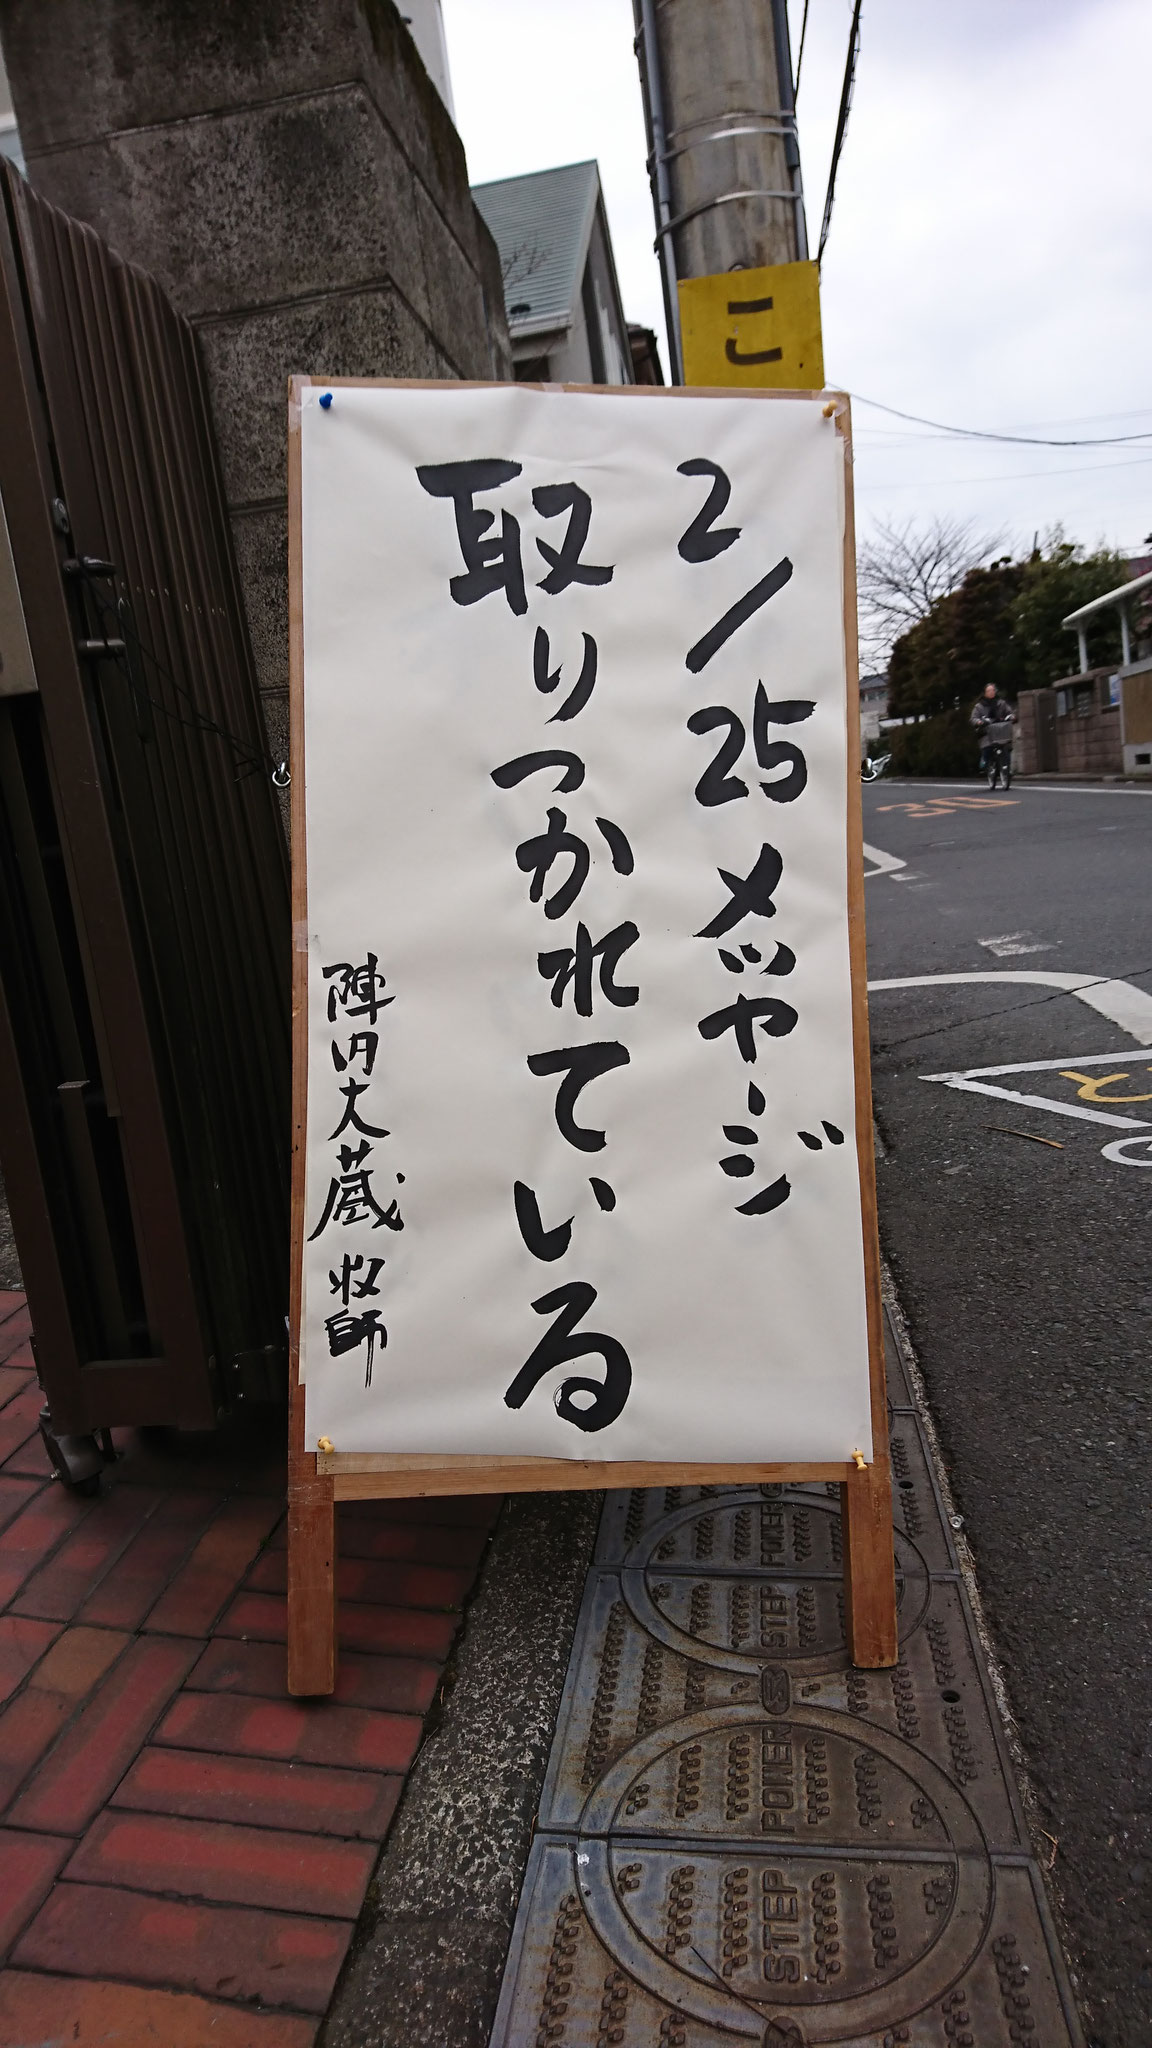 2/25 メッセージ
取りつかれている
陣内大蔵 牧師
こ
30
と
STEP POWER
STEP POWER